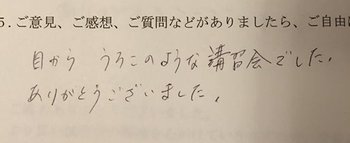 5.ご意見、ご感想、ご質問などがありましたら、ご自由に
目から うろこのような講習会でした。
ありがとうございました。